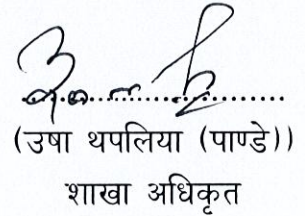 (उषा थपलिया (पाण्डे))
शाखा अधिकृत